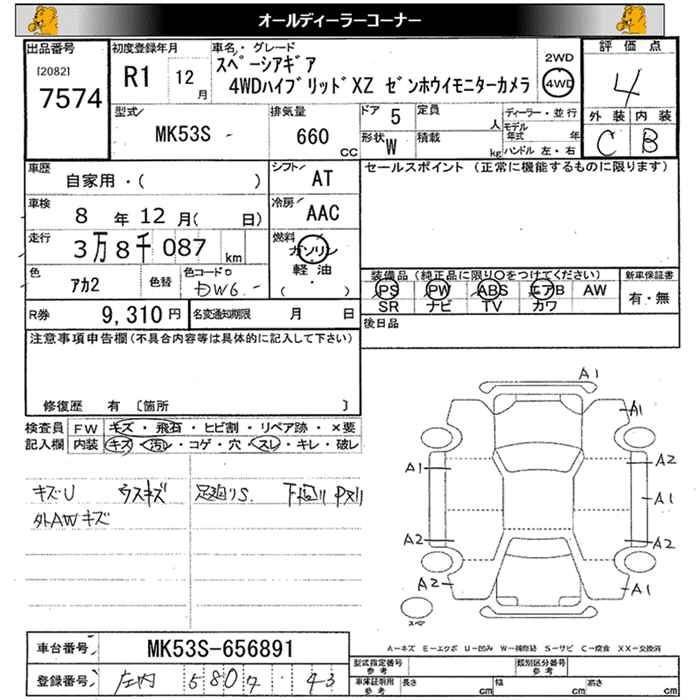 オールディーラーコーナー
出品番号
[2082]
7574
初度登録年月
R1 12月
車名・グレード
スペーシアギア
4WDハイブリッドXZ ゼンホウイモニターカメラ
2WD
4WD
評価点
4
外装 内装
C B
型式
MK53S -
排気量
660 CC
ドア 5
形状 W
定員 人
積載 kg
ディーラー・並行
モデル年式 年
ハンドル 左・右
車歴
自家用・( )
シフト AT
車検
8年 12月( 日)
冷房 AAC
走行
3万8千087 km
燃料
ガソリン
軽油
( ・ )
色
アカ2
色替
色コードNo
DW6.-
R券 9,310円
名変通知期限 月 日
セールスポイント (正常に機能するものに限ります)
装備品 (純正品に限り○をつけてください)
PS PW ABS エアB AW
SR ナビ TV カワ
新車保証書
有・無
後日品
注意事項申告欄(不具合内容等は具体的に記入して下さい)
修復歴 有 〔箇所 〕
検査員記入欄
FW キズ・飛石・ヒビ割・リペア跡・×要
内装 キズ・汚レ・コゲ・穴・スレ・キレ・破レ
キズU ウスキズ
外AWキズ
足廻りS. 下廻り
A1
A1
A1 A2
A1
A2 A2
A2 A1
スペア
A-キズ E-エクボ U-凹み W-補修跡 S-サビ C-腐食 XX-交換済
車台番号 MK53S-656891
登録番号 庄内 580 43
型式指定番号 参考
類別区分番号 参考
車庫証明用 参考
長さ cm 幅 cm 高さ cm